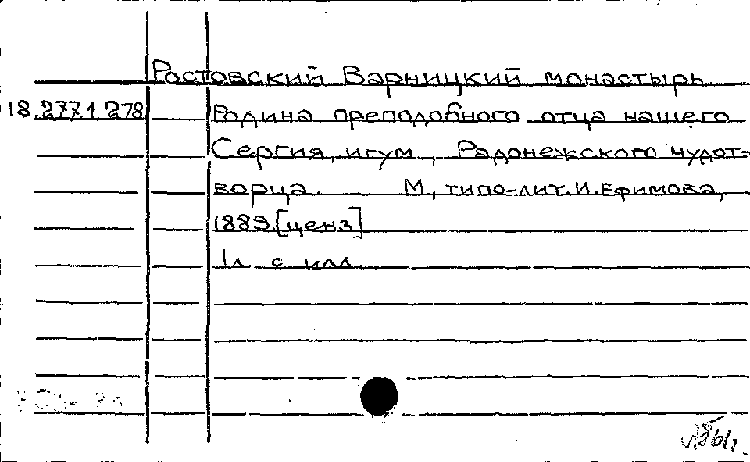 Ростовский Варницкий монастырь
18.277.1 278 Родина преподобного отца нашего
Сергия, игум. Радонежского чудот-
ворца. М, типо-лит. И. Ефимова,
1889 [ценз]
1л с илл